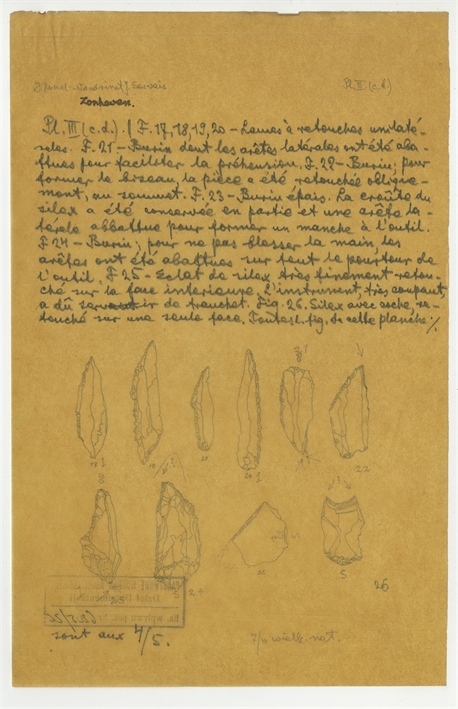 Servais
Pl. III (c.d)
Zonhoven.
Pl. III (c.d.) F. 17, 18, 19, 20 – Lames à retouches unilaté-
rales. F. 21 – Burin dont les arêtes latérales ont été aba-
ttues pour faciliter la préhension. F. 22 – Burin; pour
former le biseau, la pièce a été retouchée oblique-
ment, au sommet. F. 23 – Burin épais. La croûte du
silex a été conservée en partie et une arête la-
térale abbattue pour former un manche à l'outil.
F 24 – Burin; pour ne pas blesser la main, les
arêtes ont été abattues sur tout le pourtour de
l'outil. F. 25 – Eclat de silex très finement retou-
ché sur la face interieure. L'instrument, très coupant,
a dû servir de tranchet. Fig. 26. Silex avec coche, re-
touché sur une seule face. Toutes l. fig. de cette planche ./.
20
22
24
26
5
sont aux 4/5.
nat.